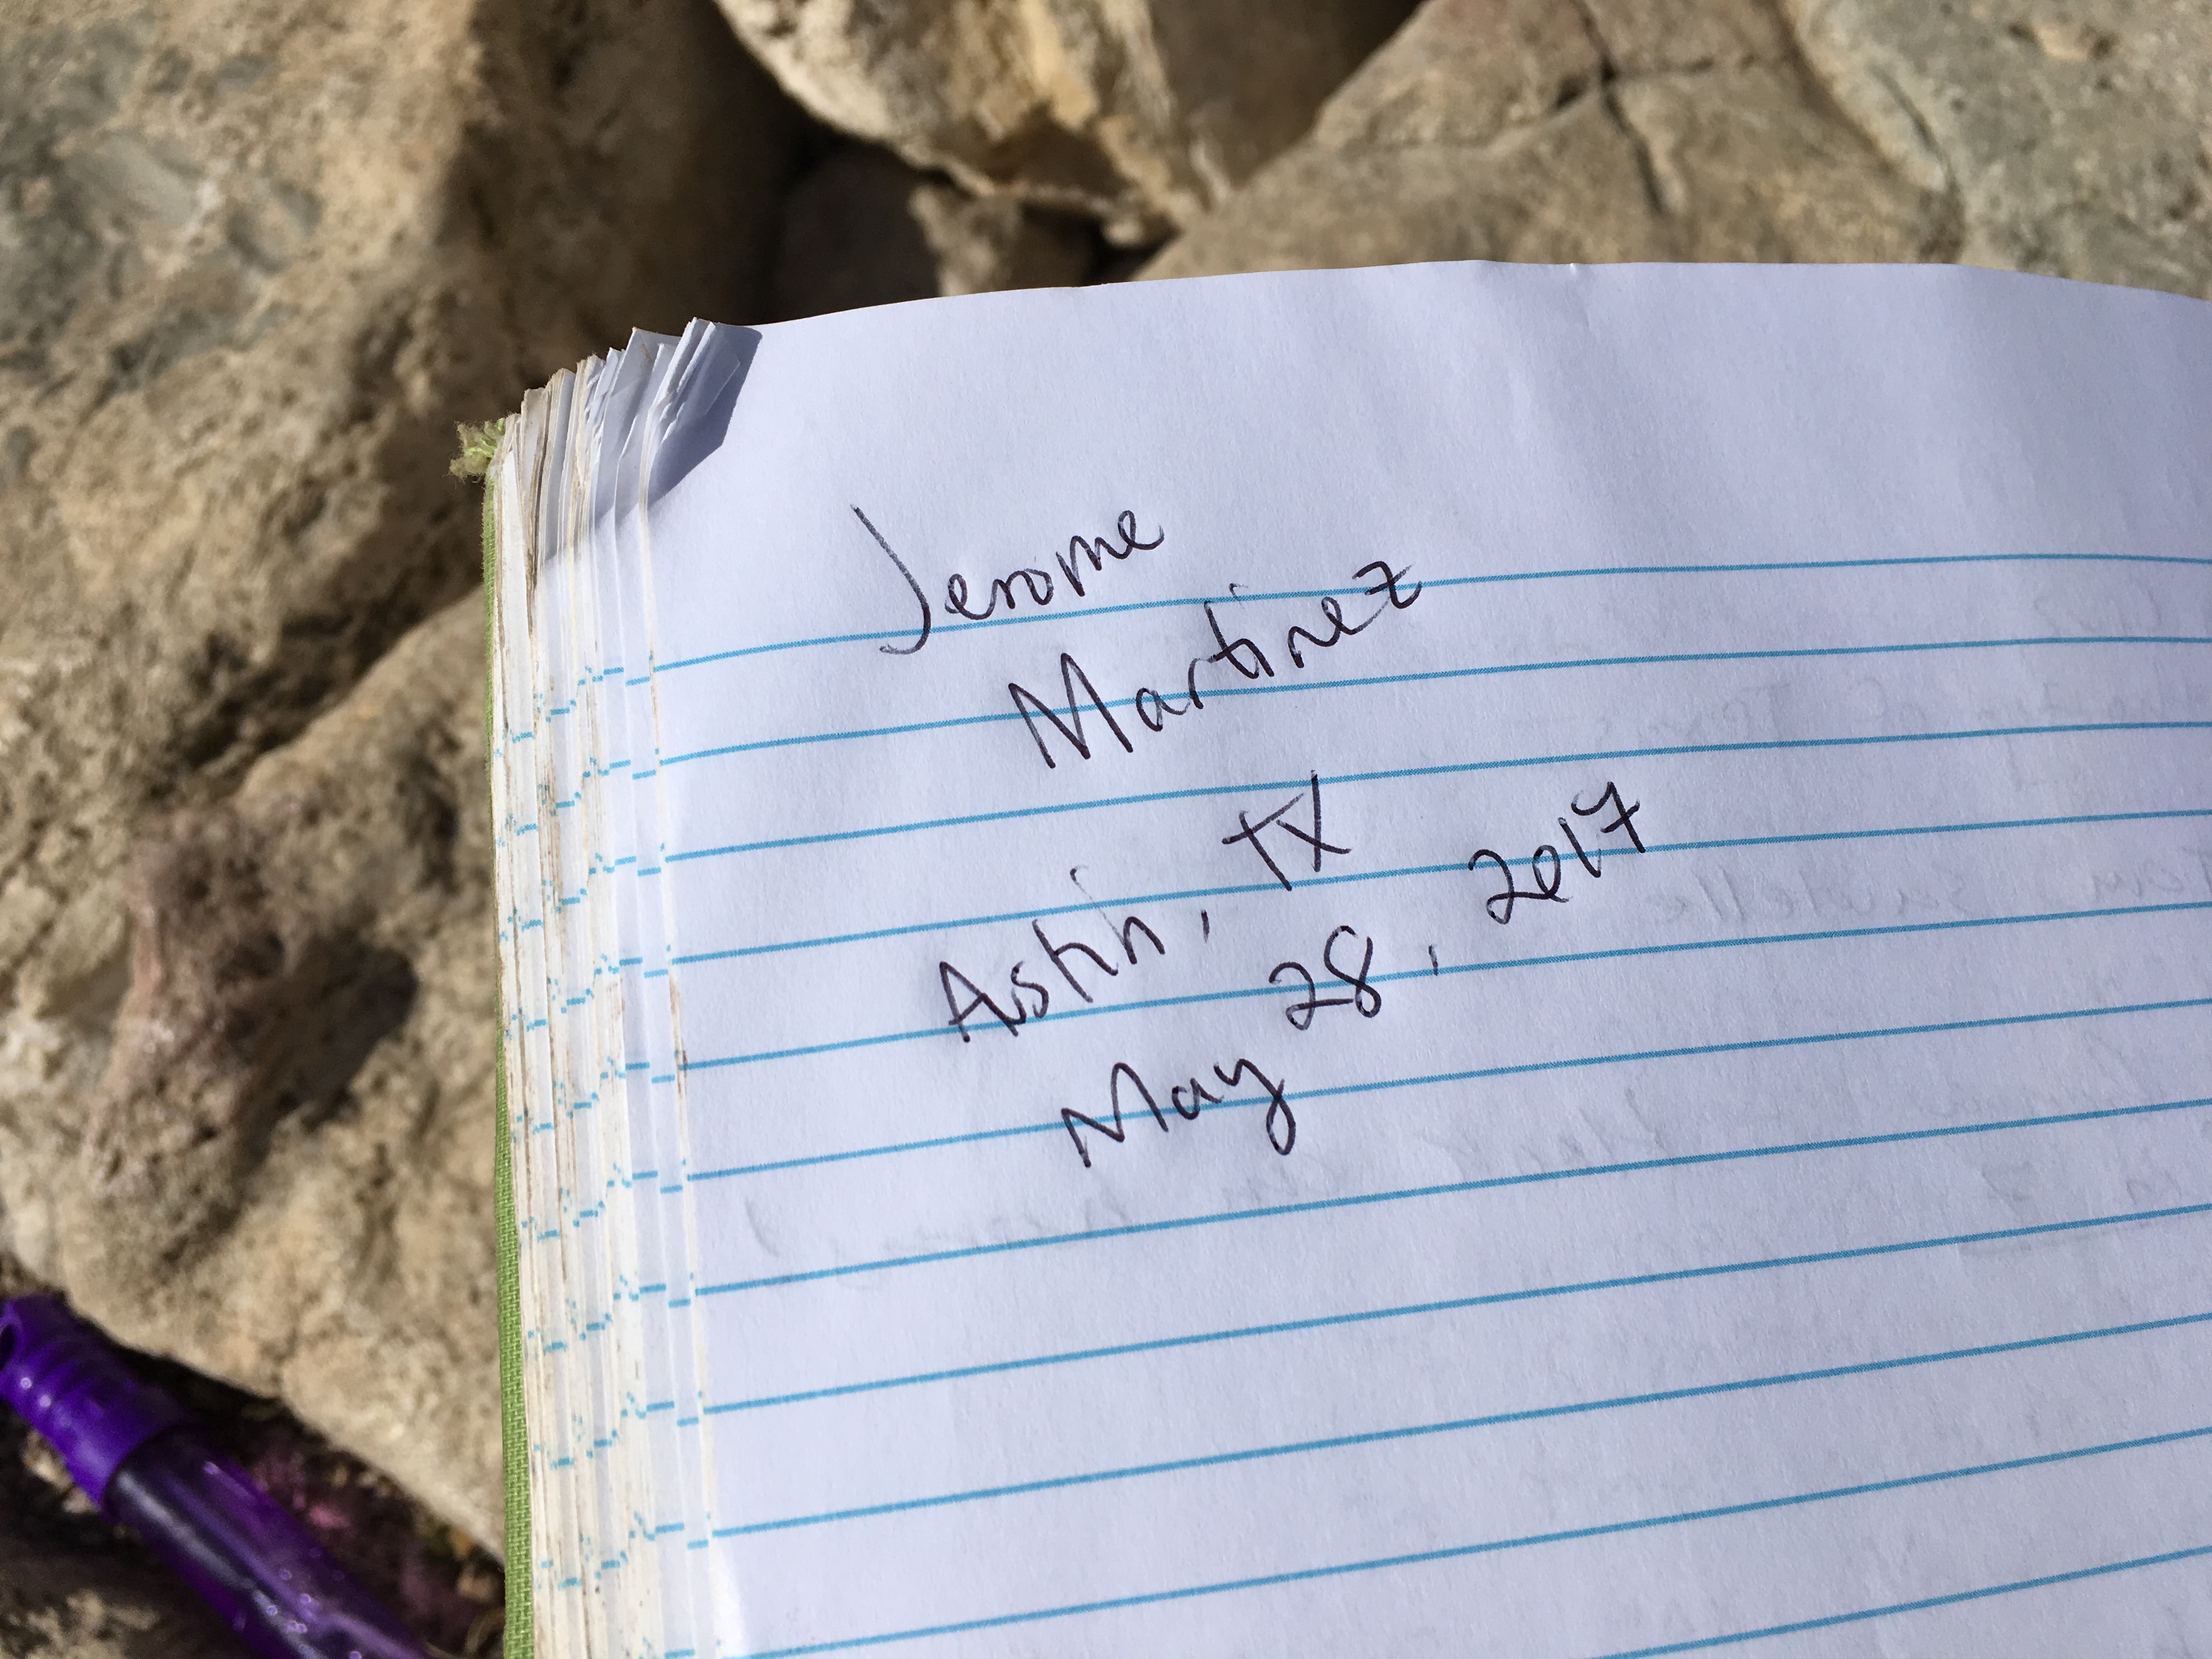 Jerome
Martinez
Austin, TX
May 28, 2017